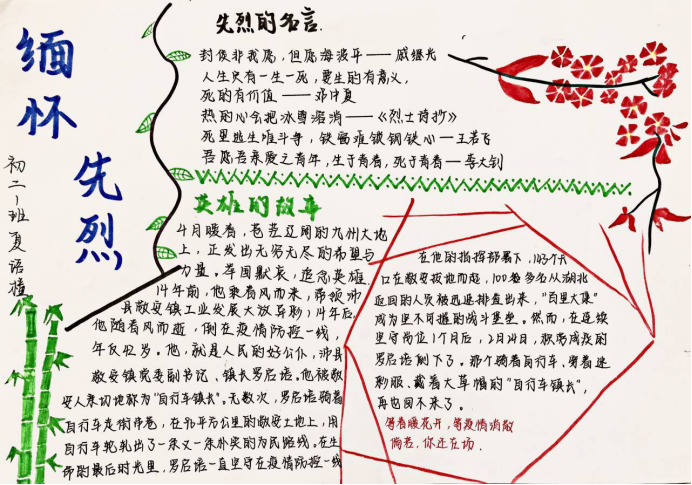 缅怀
先烈
初二1班 夏语橦
先烈的名言
封侯非我愿，但愿海波平——戚继光
人生只有一生一死，要生的有意义，
死的有价值——邓中夏
热的心会把冰雪溶消——《烈士诗抄》
死里逃生唯斗争，铁窗难锁钢铁心—王若飞
吾愿吾亲爱之青年，生于青春，死于青春——李大钊
英雄的故事
4月暖春，苍茫辽阔的九州大地
上，正发出无穷无尽的希望与
力量。举国默哀，追念英雄。
14年前，他乘着风而来，带领沛
县敬安镇工业发展大放异彩；14年后，
他随着风而逝，倒在疫情防控一线，
年仅42岁。他，就是人民的好公仆，沛县
敬安镇党委副书记、镇长罗启语。他被敬
安人亲切地称为"自行车镇长"。无数次，罗启语骑着
自行车走街串巷，在76平方公里的敬安土地上，用
自行车轮轧出了一条又一条朴实的为民路线。在生
命的最后时光里，罗启语一直坚守在疫情防控一线
在他的指挥部署下，103个关
口在敬安拔地而起，100多名从湖北
返回的人员被迅速排查出来，"百里大集"
成为坚不可摧的战斗堡垒。然而，在连续
坚守岗位1个月后，2月24日，积劳成疾的
罗启语倒下了。那个骑着自行车、穿着迷
彩服、戴着大草帽的"自行车镇长"，
再也回不来了。
等春暖花开，等疫情消散
倘若，你还在功